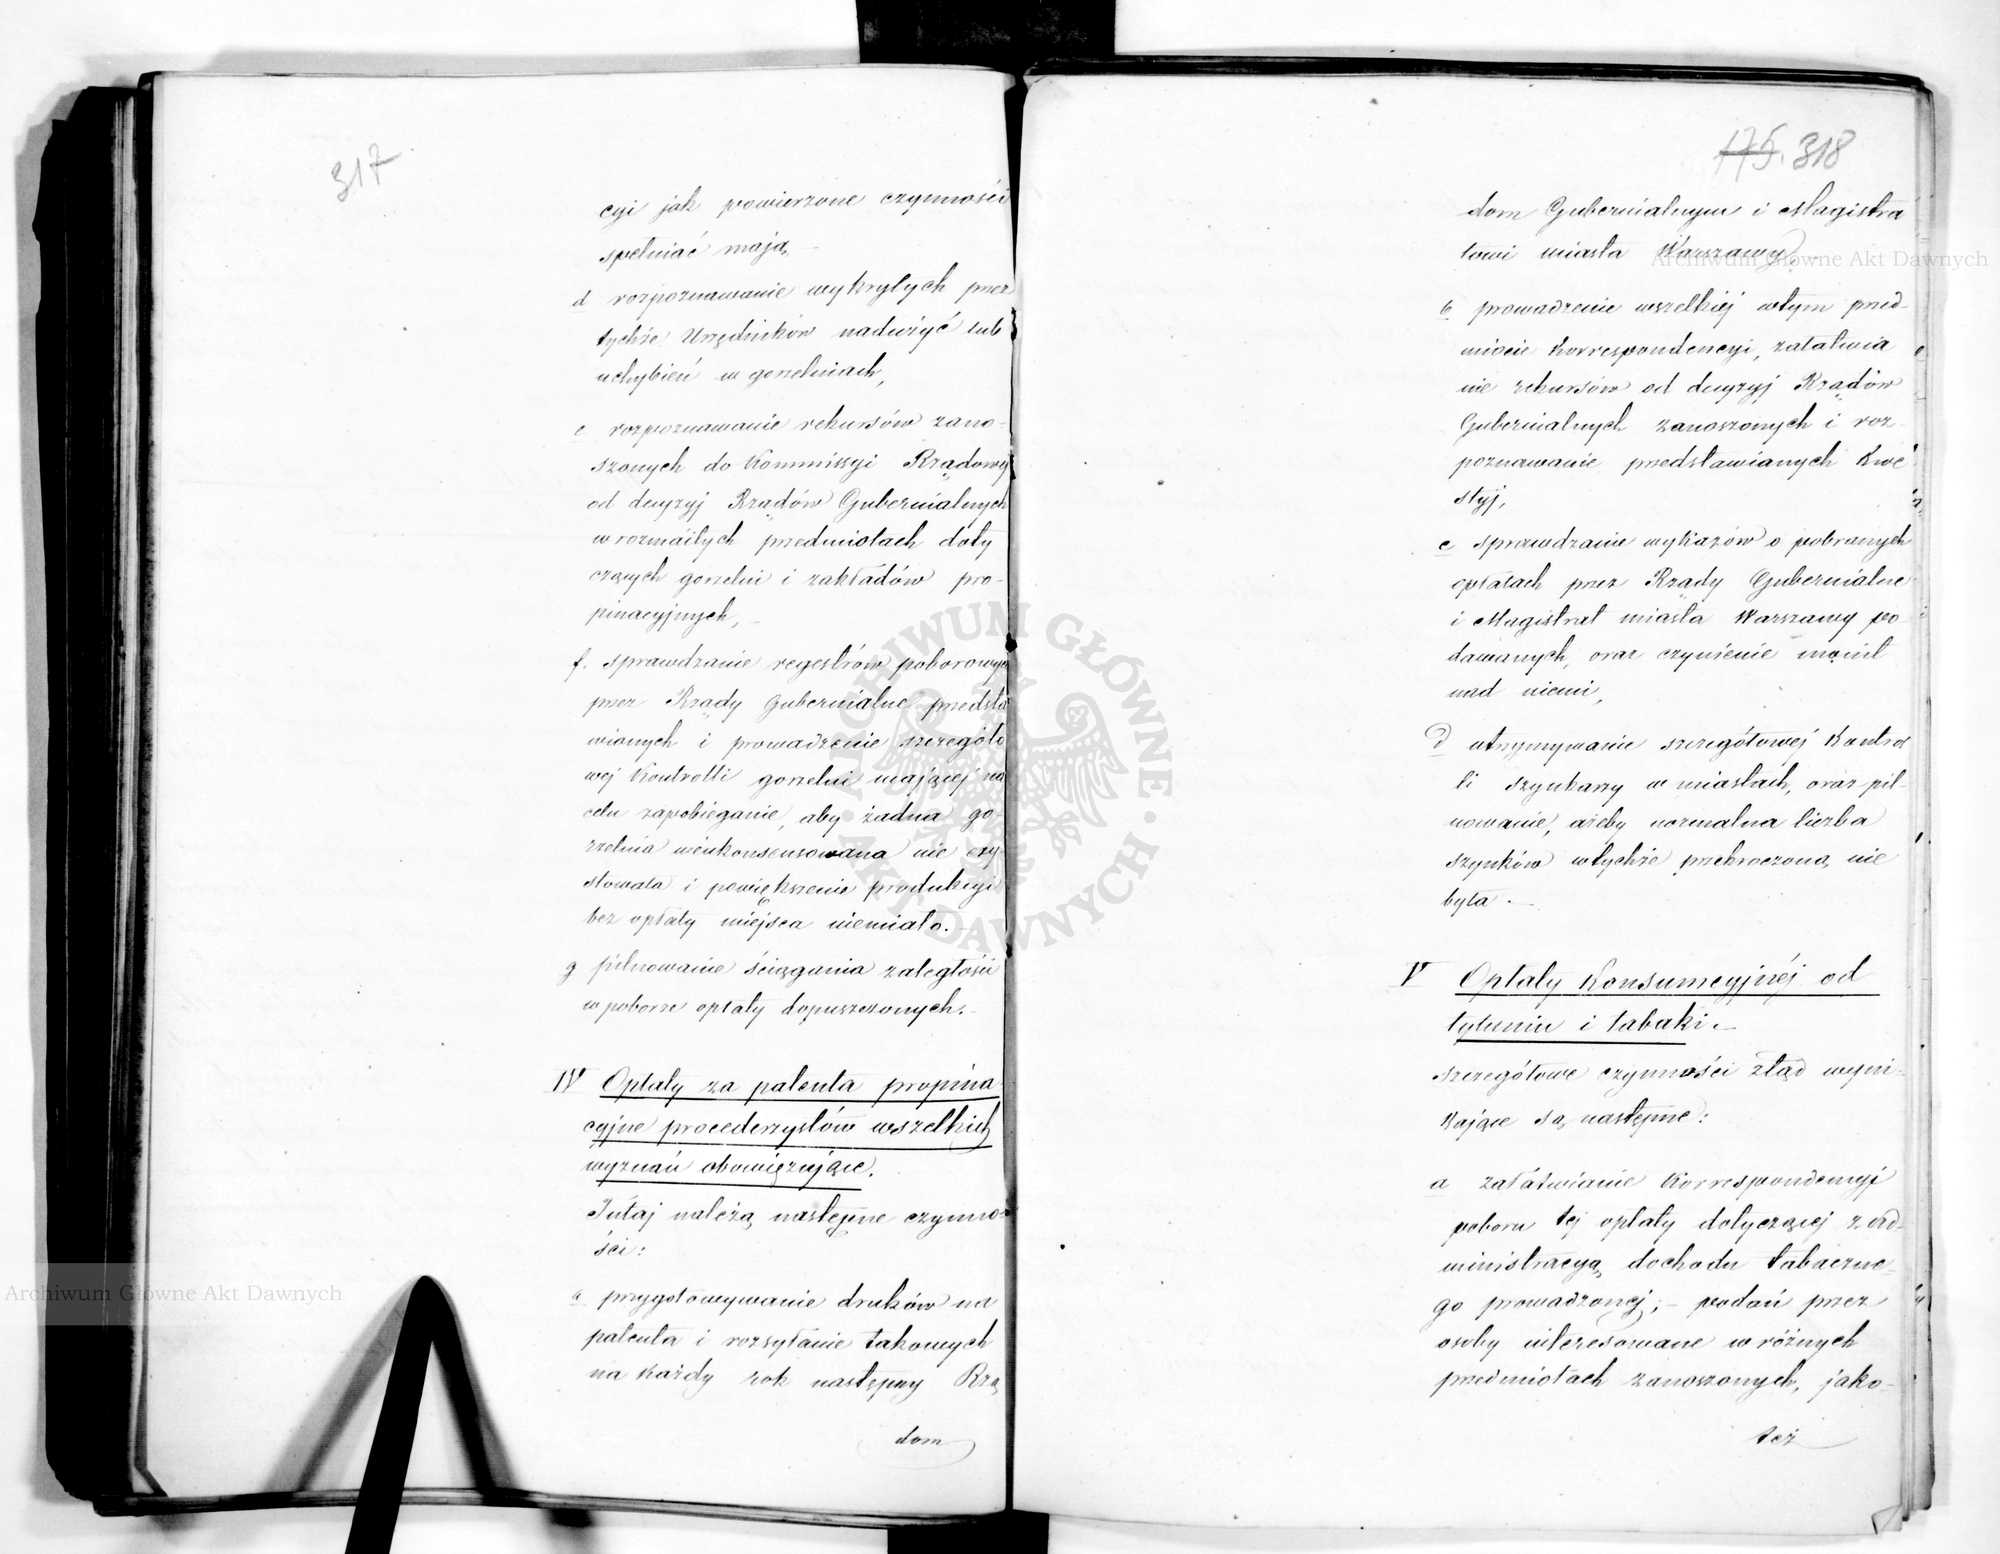 317
cyi jak powierzone czynności
spełniać mają, —
d rozpoznawanie wykrytych przez
tychże Urzędników nadużyć lub
uchybień w gorzelniach,
e rozpoznawanie rekursów zano-
szonych do Kommissyi Rządowej
od decyzyj Rządów Gubernialnych
w rozmaitych przedmiotach doty
czących gorzelni i zakładów pro-
pinacyjnych, —
f. sprawdzanie regestrów poborowych
przez Rządy Gubernialne przedsta
wionych i prowadzenie szczegóło
wej Kontrolli gorzelni mającej na
celu zapobieganie, aby żadna go-
rzelnia nieukonsensowana nie exy-
stowała i powiększenie produkcyi
bez opłaty miejsca niemiało. —
g pilnowanie ściągania zaległości
w poborze opłaty dopuszczonych. —
IV Opłaty za patenta propina
cyjne procederzystów wszelkich
wyznań obowiązujące.
Tutaj należą następne czynno-
ści:
a przygotowywanie druków na
patenta i rozsyłanie takowych
na każdy rok następny Rzą
dom
175. 318
dom Gubernialnym i Magistra
towi miasta Warszawy, —
b prowadzenie wszelkiej wtym przed-
miocie korrespondencyi, załatwia
nie rekursów od decyzyj Rządów
Gubernialnych zanoszonych i roz-
poznawanie przedstawianych kwe
styj,
c sprawdzanie wykazów o pobranych
opłatach przez Rządy Gubernialne
i Magistrat miasta Warszawy po-
dawanych, oraz czynienie monit
nad niemi,
d utrzymywanie szczegółowej Kontrol
li szynkarzy w miastach, oraz pil-
nowanie, ażeby normalna liczba
szynków wtychże przekroczoną nie
była. —
V Opłaty Konsumcyjnéj od
tytuniu i tabaki. —
szczegółowe czynności ztąd wyni-
kające są następne:
a załatwianie Korrespondencyi
poboru tej opłaty dotyczącej z ad-
ministracyą dochodu tabaczne-
go prowadzonej; — podań przez
osoby interesowane w różnych
przedmiotach zanoszonych, jako-
też
Archiwum Główne Akt Dawnych
Archiwum Główne Akt Dawnych
ARCHIWUM GŁÓWNE AKT DAWNYCH